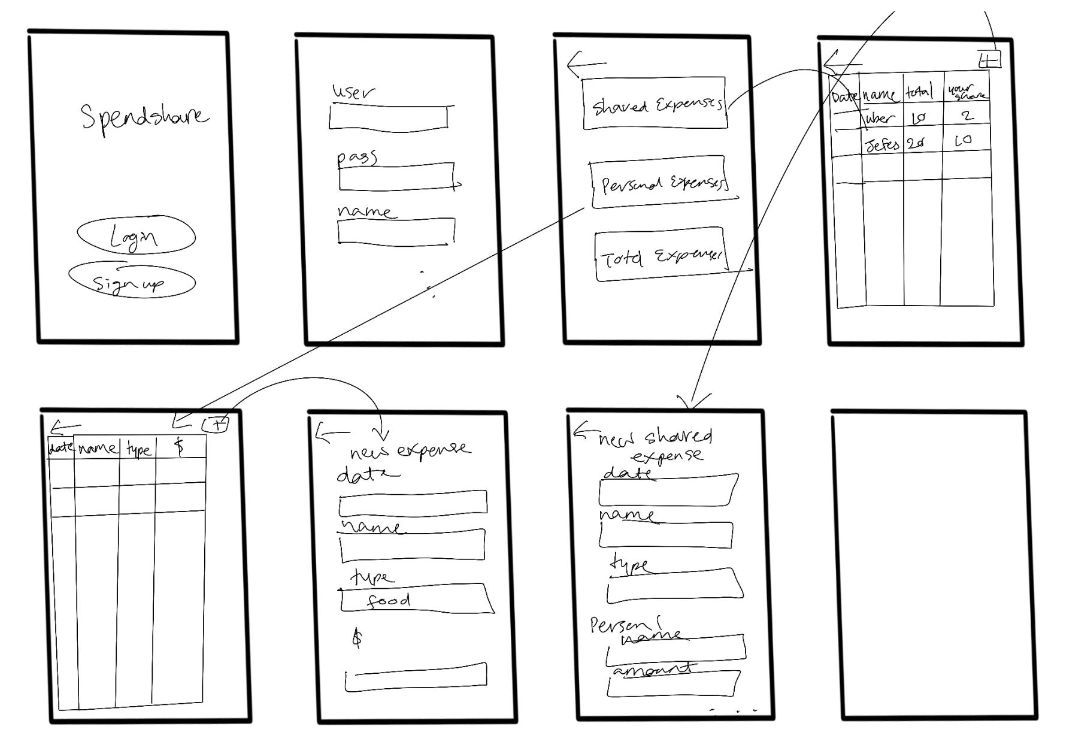 Spendshare
Login
Sign up
user
pass
name
Shared Expenses
Personal Expenses
Total Expenses
+
Date name total your share
uber 10 2
Jefes 20 10
+
date name type $
new expense
date
name
type
food
$
new shared
expense
date
name
type
Person 1
name
amount